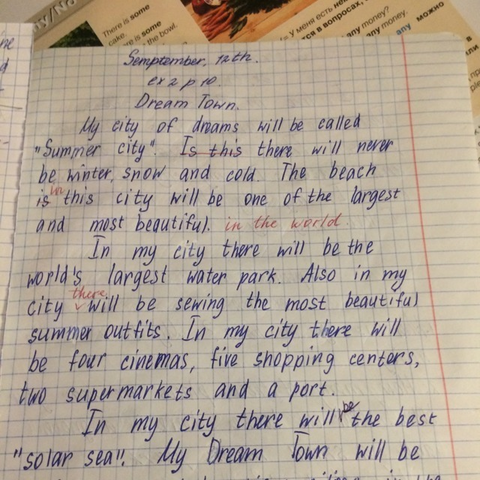 There is some
cake.
is some
the bowl.
У меня есть
в вопросах,
any money?
any money?
any можно
Semptember, 12th.
ex 2 p 10
Dream Town.
My city of dreams will be called
"Summer city". Is this there will never
be winter, snow and cold. The beach
is in this city will be one of the largest
and most beautiful. in the world.
In my city there will be the
world's largest water park. Also in my
city there will be sewing the most beautiful
summer outfits. In my city there will
be four cinemas, five shopping centers,
two supermarkets and a port.
In my city there will be the best
"solar sea". My Dream Town will be